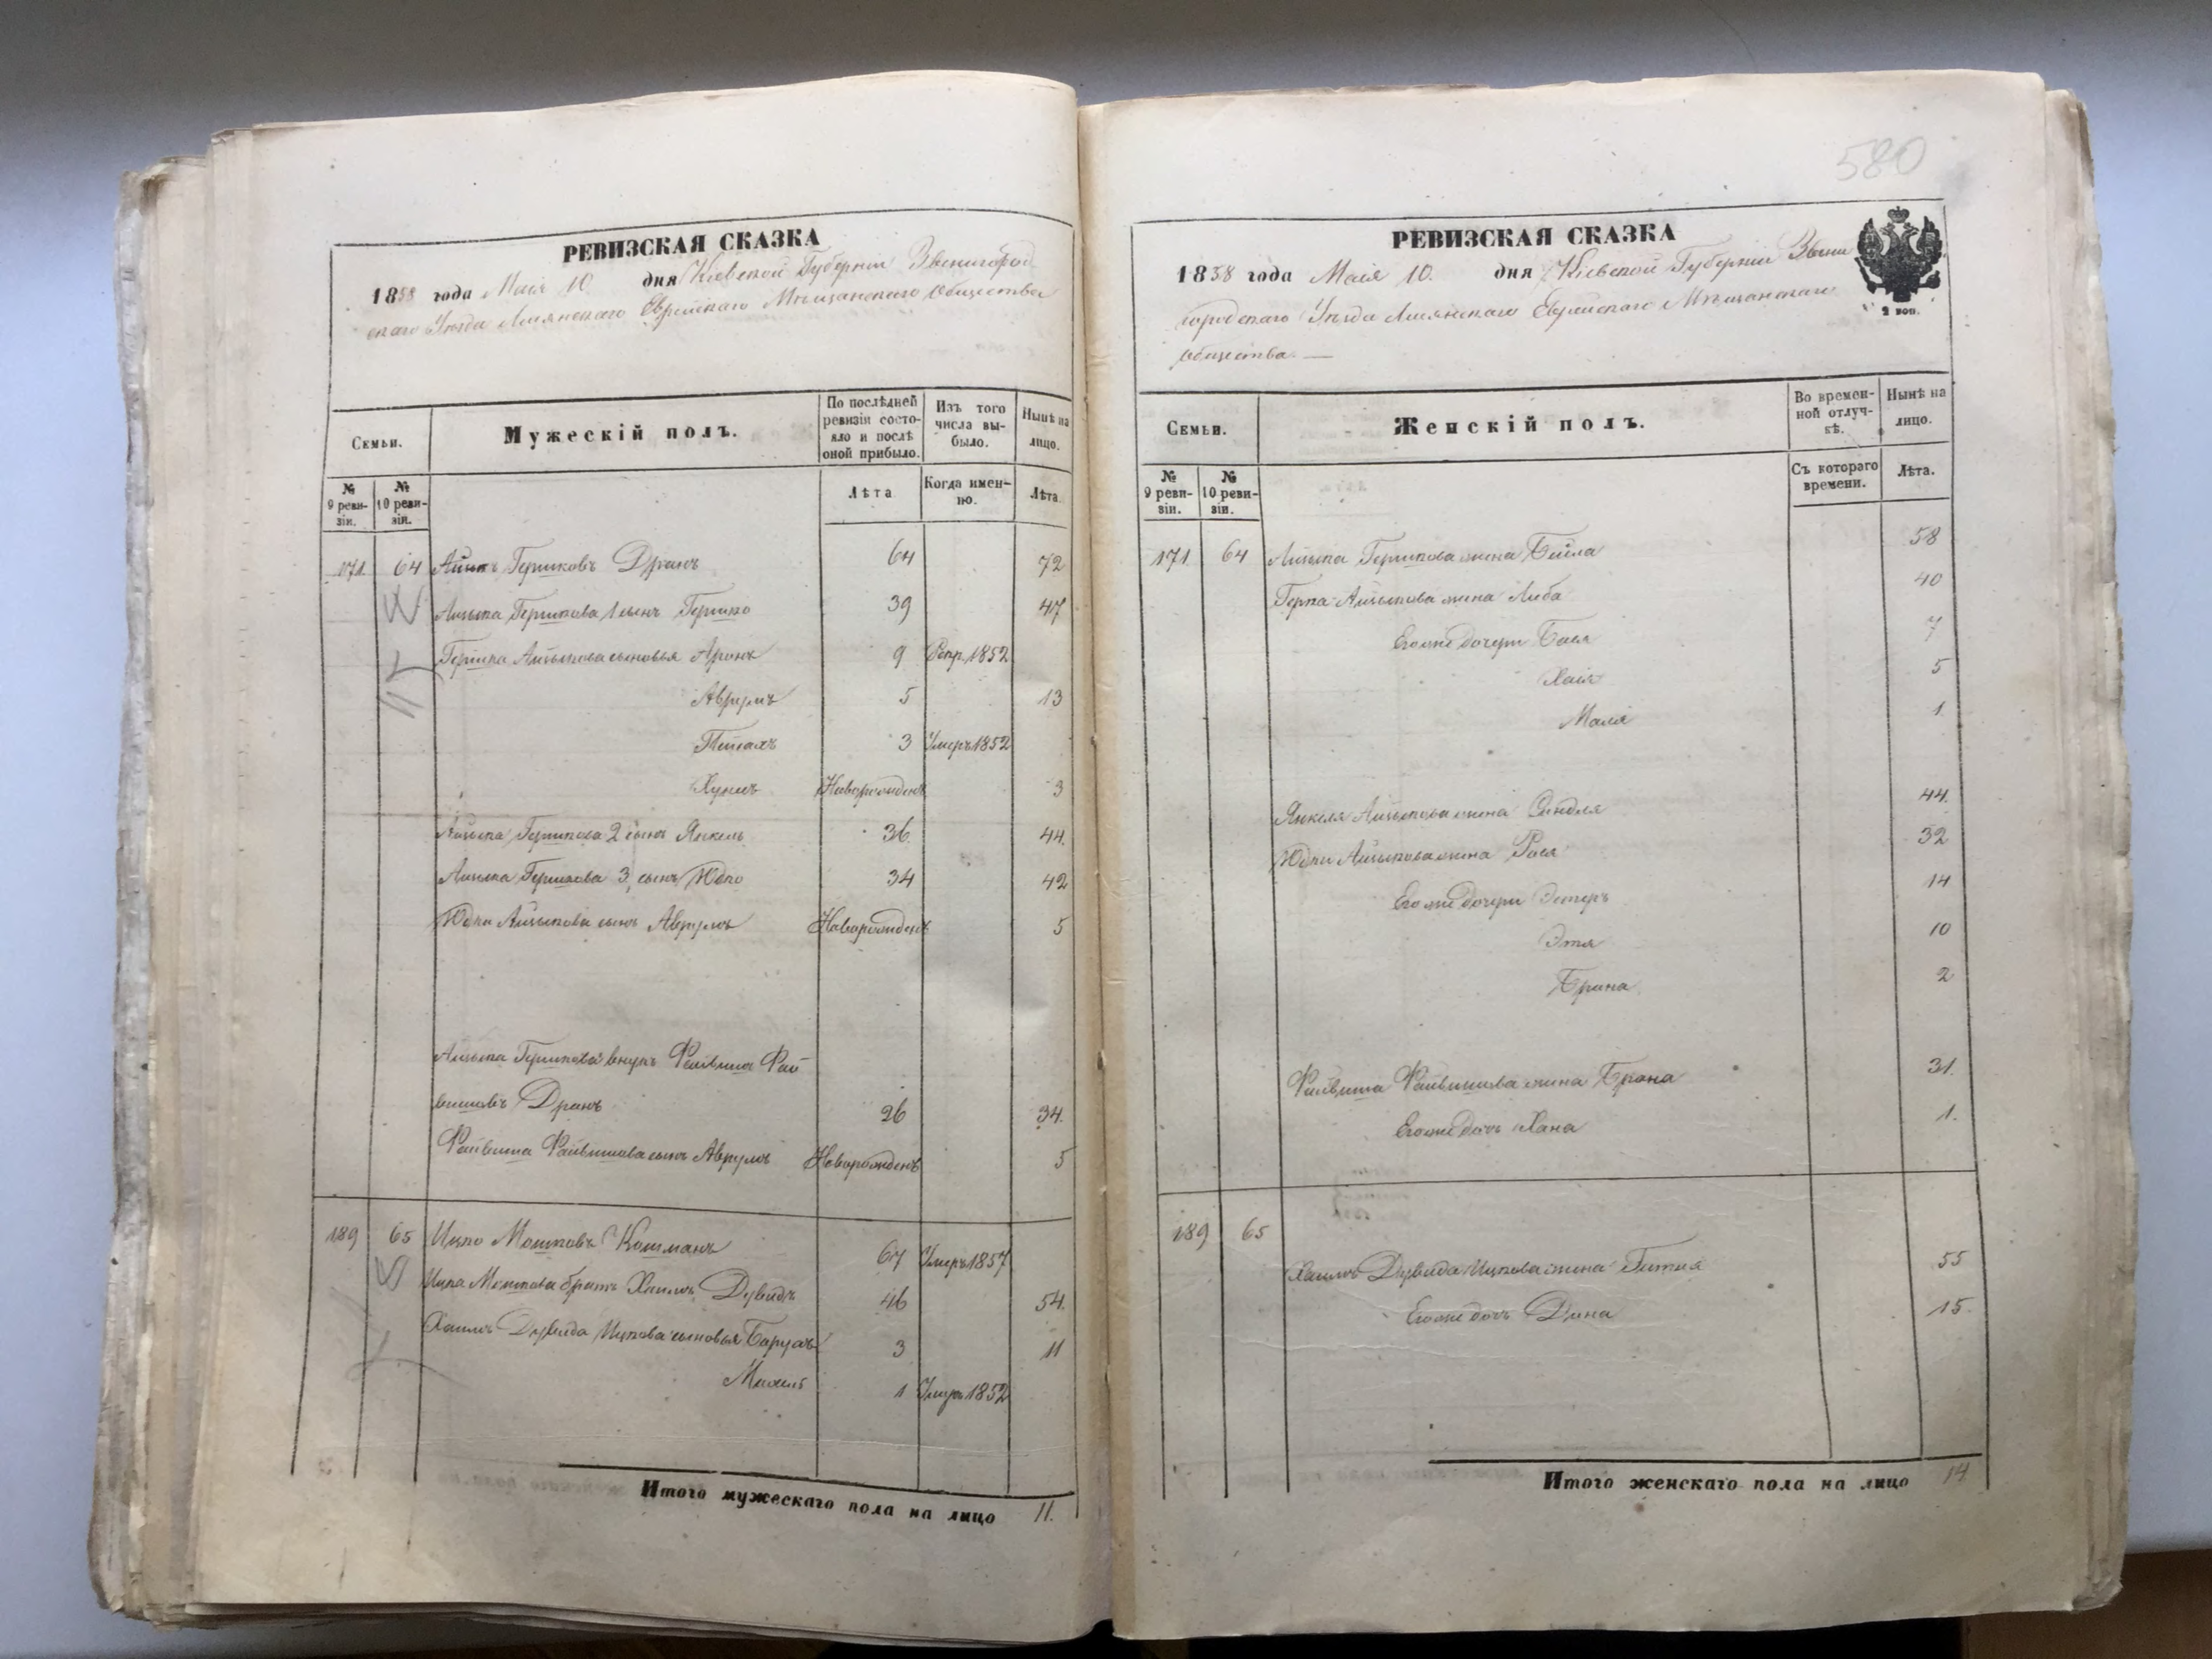 РЕВИЗСКАЯ СКАЗКА
1858 года Маія 10 дня Кіевской Губерніи Звенигород
скаго Уѣзда Лисянскаго Еврейскаго Мѣщанскаго Общества
Семьи.
Мужескій полъ.
По послѣдней ревизіи состояло и послѣ оной прибыло.
Изъ того числа выбыло.
Нынѣ на лицо.
№ 9 ревизіи.
№ 10 ревизіи.
Лѣта
Когда именно.
Лѣта.
171 64 Айзикъ Гершковъ Дранъ 64 72
Айзика Гершкова 1 сынъ Гершко 39 47
Гершка Айзикова сыновья Аронъ 9 Рекр. 1852
Аврумъ 5 13
Пейсахъ 3 Умеръ 1852
Новорожденъ 3
Айзика Гершкова 2 сынъ Янкель 36 44
Айзика Гершкова 3 сынъ Юдко 34 42
Юдки Айзикова сынъ Аврумъ Новорожденъ 5
Айзика Гершкова внукъ Файвишъ Фай
вишовъ Дранъ 26 34
Файвиша Файвишова сынъ Аврумъ Новорожденъ 5
189 65 Ицко Мошковъ 67 Умеръ 1857
Ицка Мошкова братъ Хаимъ Дувидъ 46 54
Хаимъ Дувида Ицкова сыновья Барухъ 3 11
Михель 1 Умеръ 1852
Итого мужескаго пола на лицо 11.
580
РЕВИЗСКАЯ СКАЗКА
1858 года Маія 10. дня Кіевской Губерніи Звени
городскаго Уѣзда Лисянскаго Еврейскаго Мѣщанскаго
Общества. —
2 коп.
Семьи.
Женскій полъ.
Во временной отлучкѣ.
Нынѣ на лицо.
№ 9 ревизіи.
№ 10 ревизіи.
Съ котораго времени.
Лѣта.
171 64 Айзика Гершкова жена Бейла 58
Герша Айзикова жена Либа 40
Его же дочери Бася 7
Хаія 5
Маля 1
Янкеля Айзикова жена Синдля 44
Юдки Айзикова жена Рася 32
Его же дочери Эстеръ 14
Этя 10
Брана 2
Файвиша Файвишова жена Брана 31
Его же дочь Хана 1.
189 65
Хаимъ Дувида Ицкова жена Гитля 55
Его же дочь Дина 15
Итого женскаго пола на лицо 14